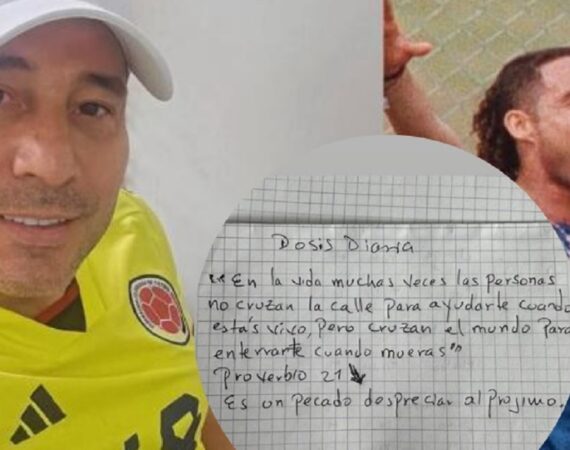 Dosis Diaria
"En la vida muchas veces las personas
no cruzan la calle para ayudarte cuando
estás vivo, pero cruzan el mundo para
enterrarte cuando mueras"
Proverbio 21
Es un pecado despreciar al projimo.